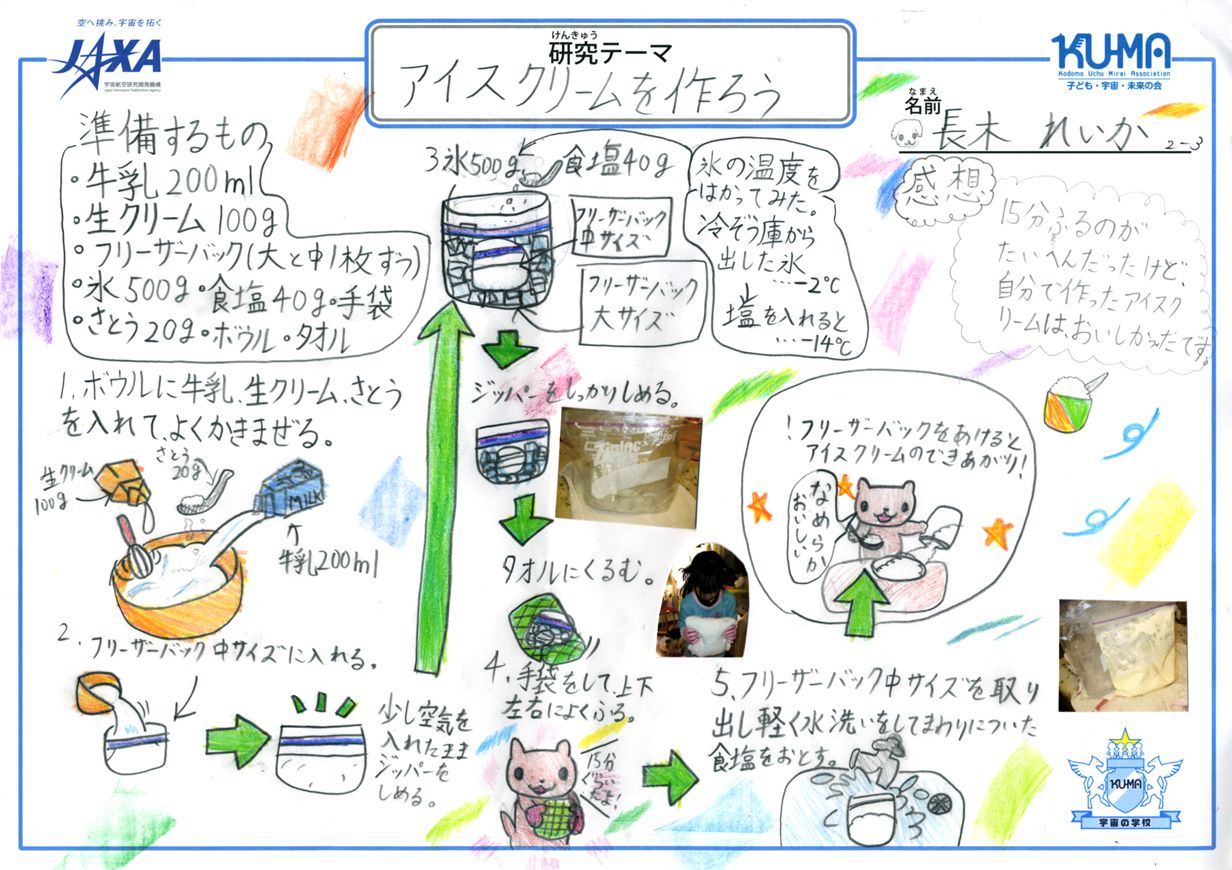 空へ挑み、宇宙を拓く
JAXA
宇宙航空研究開発機構
Japan Aerospace Exploration Agency
けんきゅう
研究テーマ
アイスクリームを作ろう
KU-MA
Kodomo Uchu Mirai Association
子ども・宇宙・未来の会
なまえ
名前
長木 れいか 2-3
準備するもの
・牛乳200ml
・生クリーム100g
・フリーザーバック(大と中1枚ずつ)
・氷500g・食塩40g・手袋
・さとう20g・ボウル・タオル
1.ボウルに牛乳、生クリーム、さとう
を入れて、よくかきまぜる。
生クリーム
100g
さとう
20g
MILK
牛乳200ml
2.フリーザーバック中サイズに入れる。
少し空気を
入れたまま
ジッパーを
しめる。
3氷500g
食塩40g
フリーザーバック
中サイズ
フリーザーバック
大サイズ
氷の温度を
はかってみた。
冷ぞう庫から
出した氷
…-2℃
塩を入れると
…-14℃
ジッパーをしっかりしめる。
タオルにくるむ。
4.手袋をして、上下
左右によくふる。
15分
ぐらい
だよ!
5.フリーザーバック中サイズを取り
出し軽く水洗いをしてまわりについた
食塩をおとす。
!フリーザーバックをあけると
アイスクリームのできあがり!
なめらか
おいしい
感想
15分ふるのが
たいへんだったけど、
自分で作ったアイスク
リームは、おいしかったです。
KUMA
宇宙の学校